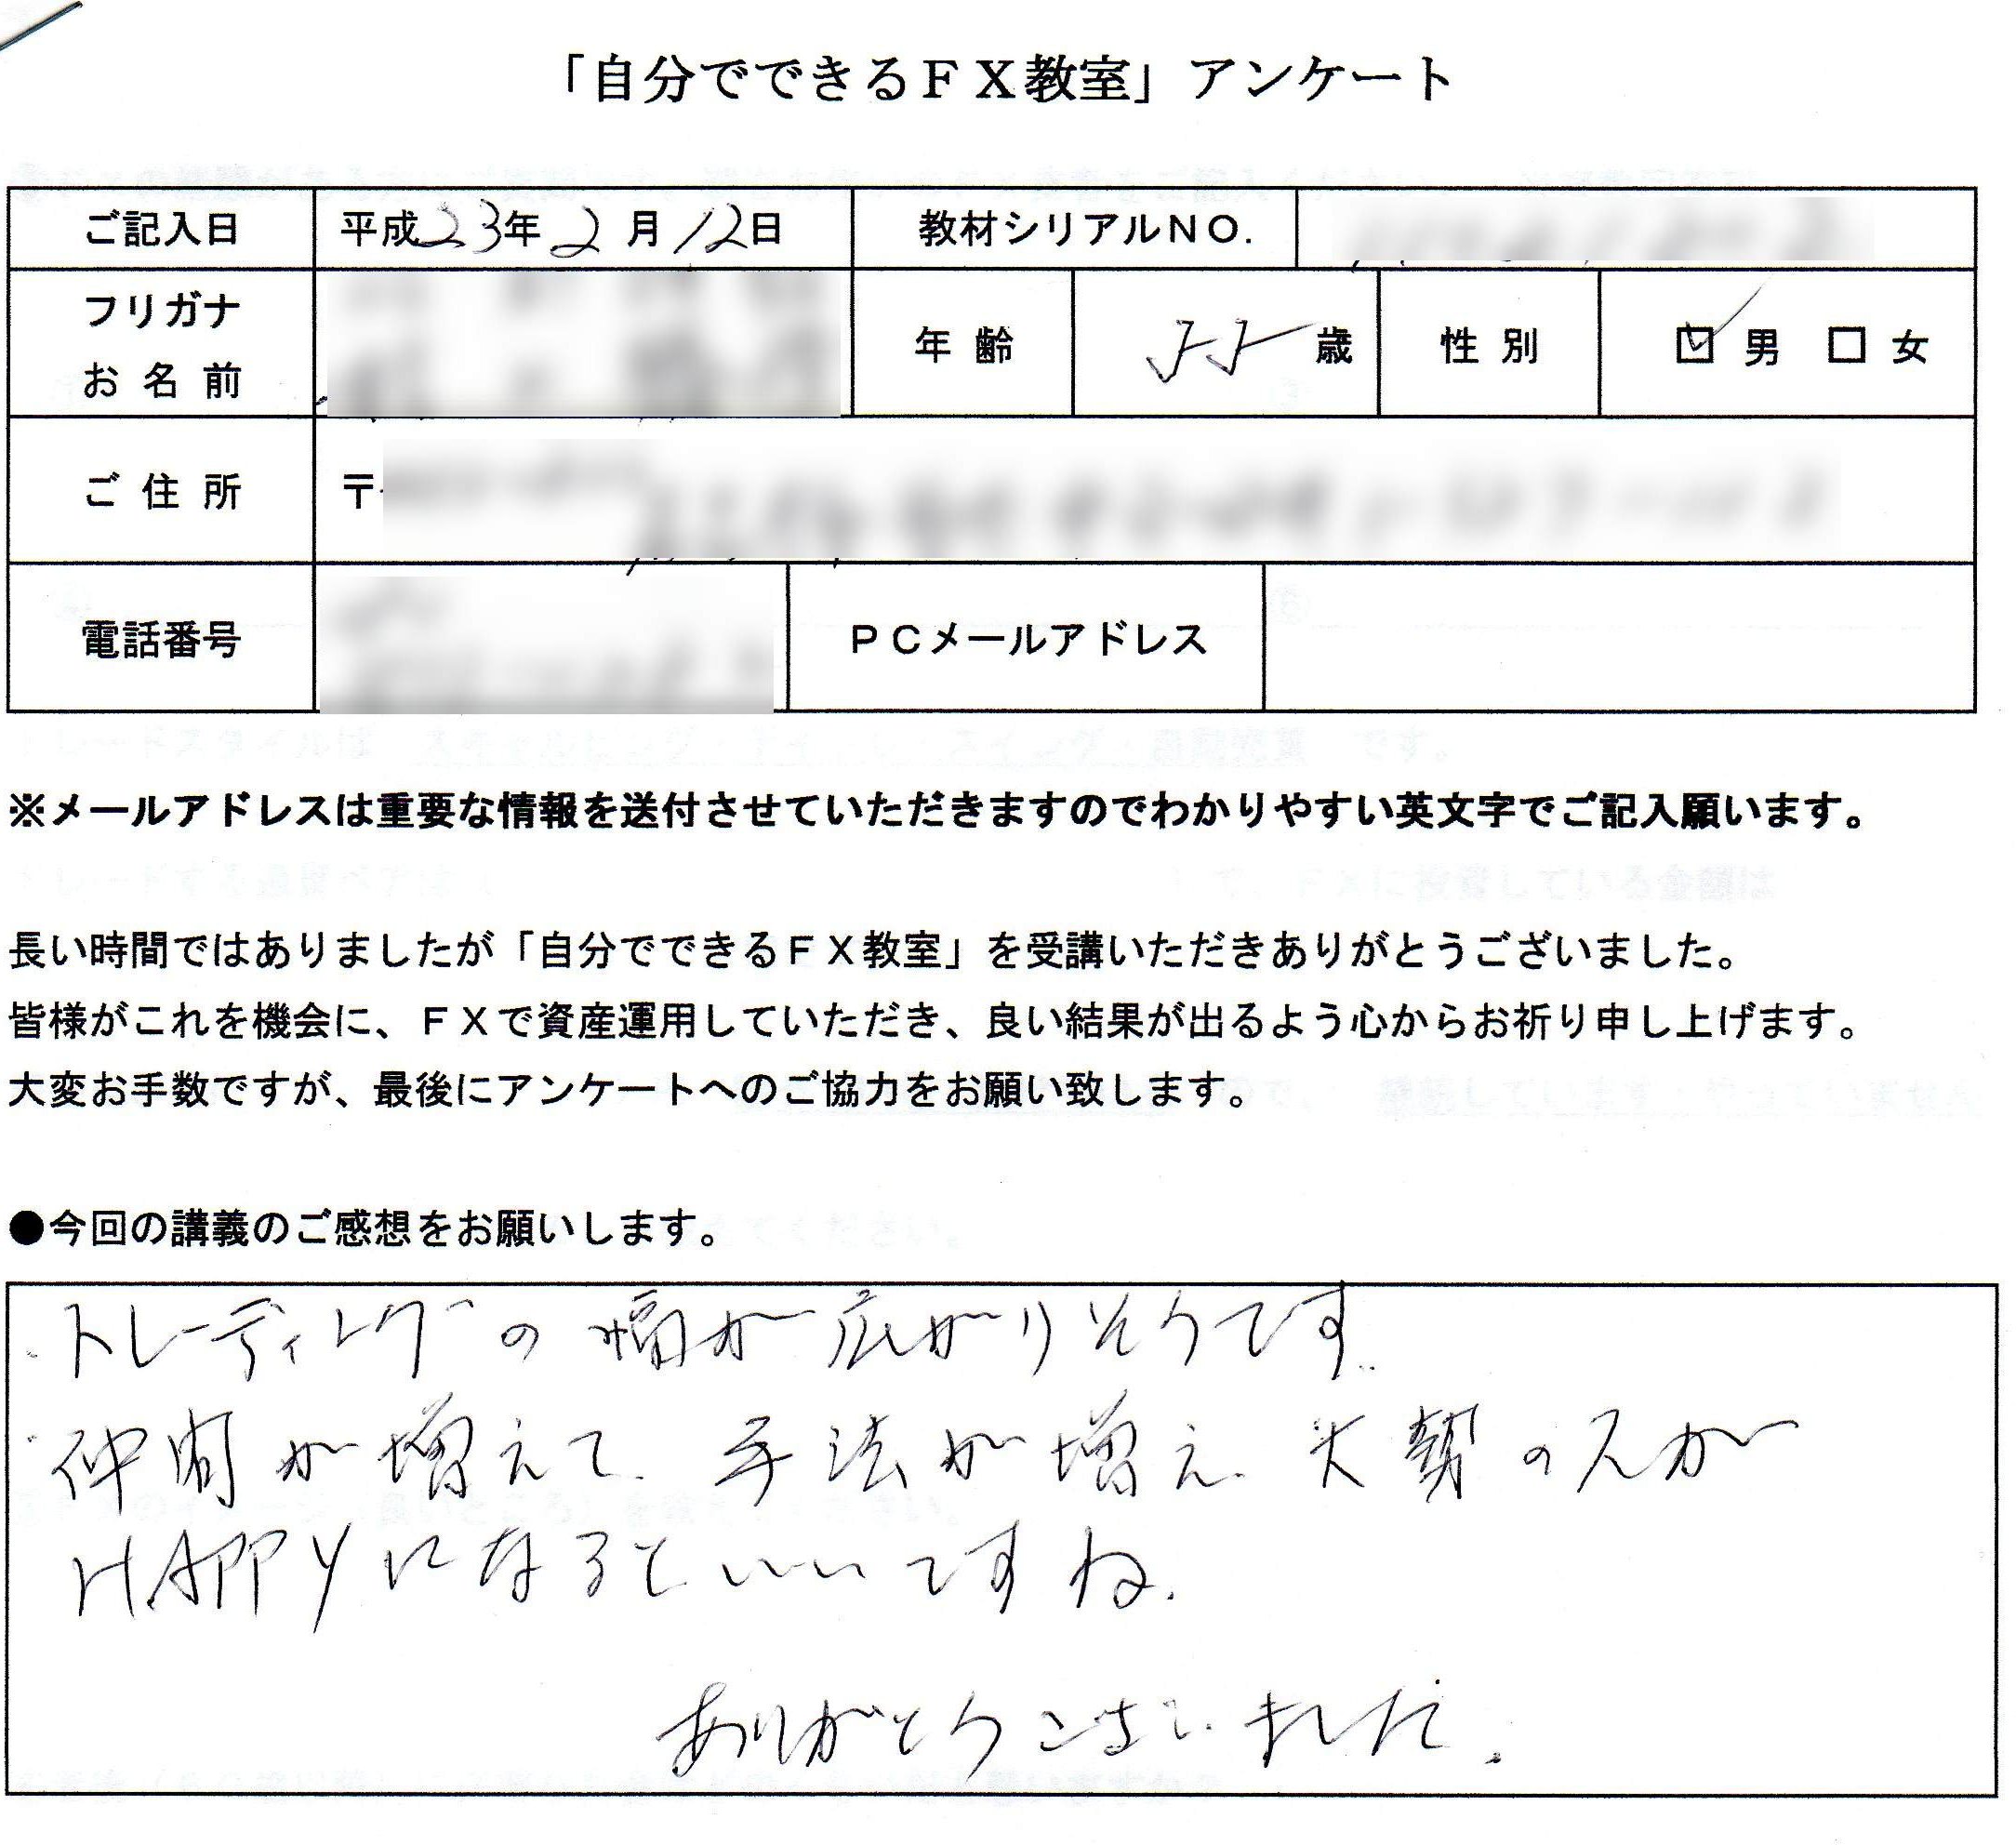 「自分でできるＦＸ教室」アンケート
ご記入日 平成23年2月12日 教材シリアルＮＯ.
フリガナ
お名前 年齢 55歳 性別 ☑男 □女
ご住所 〒
電話番号 ＰＣメールアドレス
※メールアドレスは重要な情報を送付させていただきますのでわかりやすい英文字でご記入願います。
長い時間ではありましたが「自分でできるＦＸ教室」を受講いただきありがとうございました。
皆様がこれを機会に、ＦＸで資産運用していただき、良い結果が出るよう心からお祈り申し上げます。
大変お手数ですが、最後にアンケートへのご協力をお願い致します。
●今回の講義のご感想をお願いします。
・トレーディングの幅が広がりそうです.
・仲間が増えて、手法が増え、大勢の人が
HAPPYになるといいですね.
ありがとうございました.